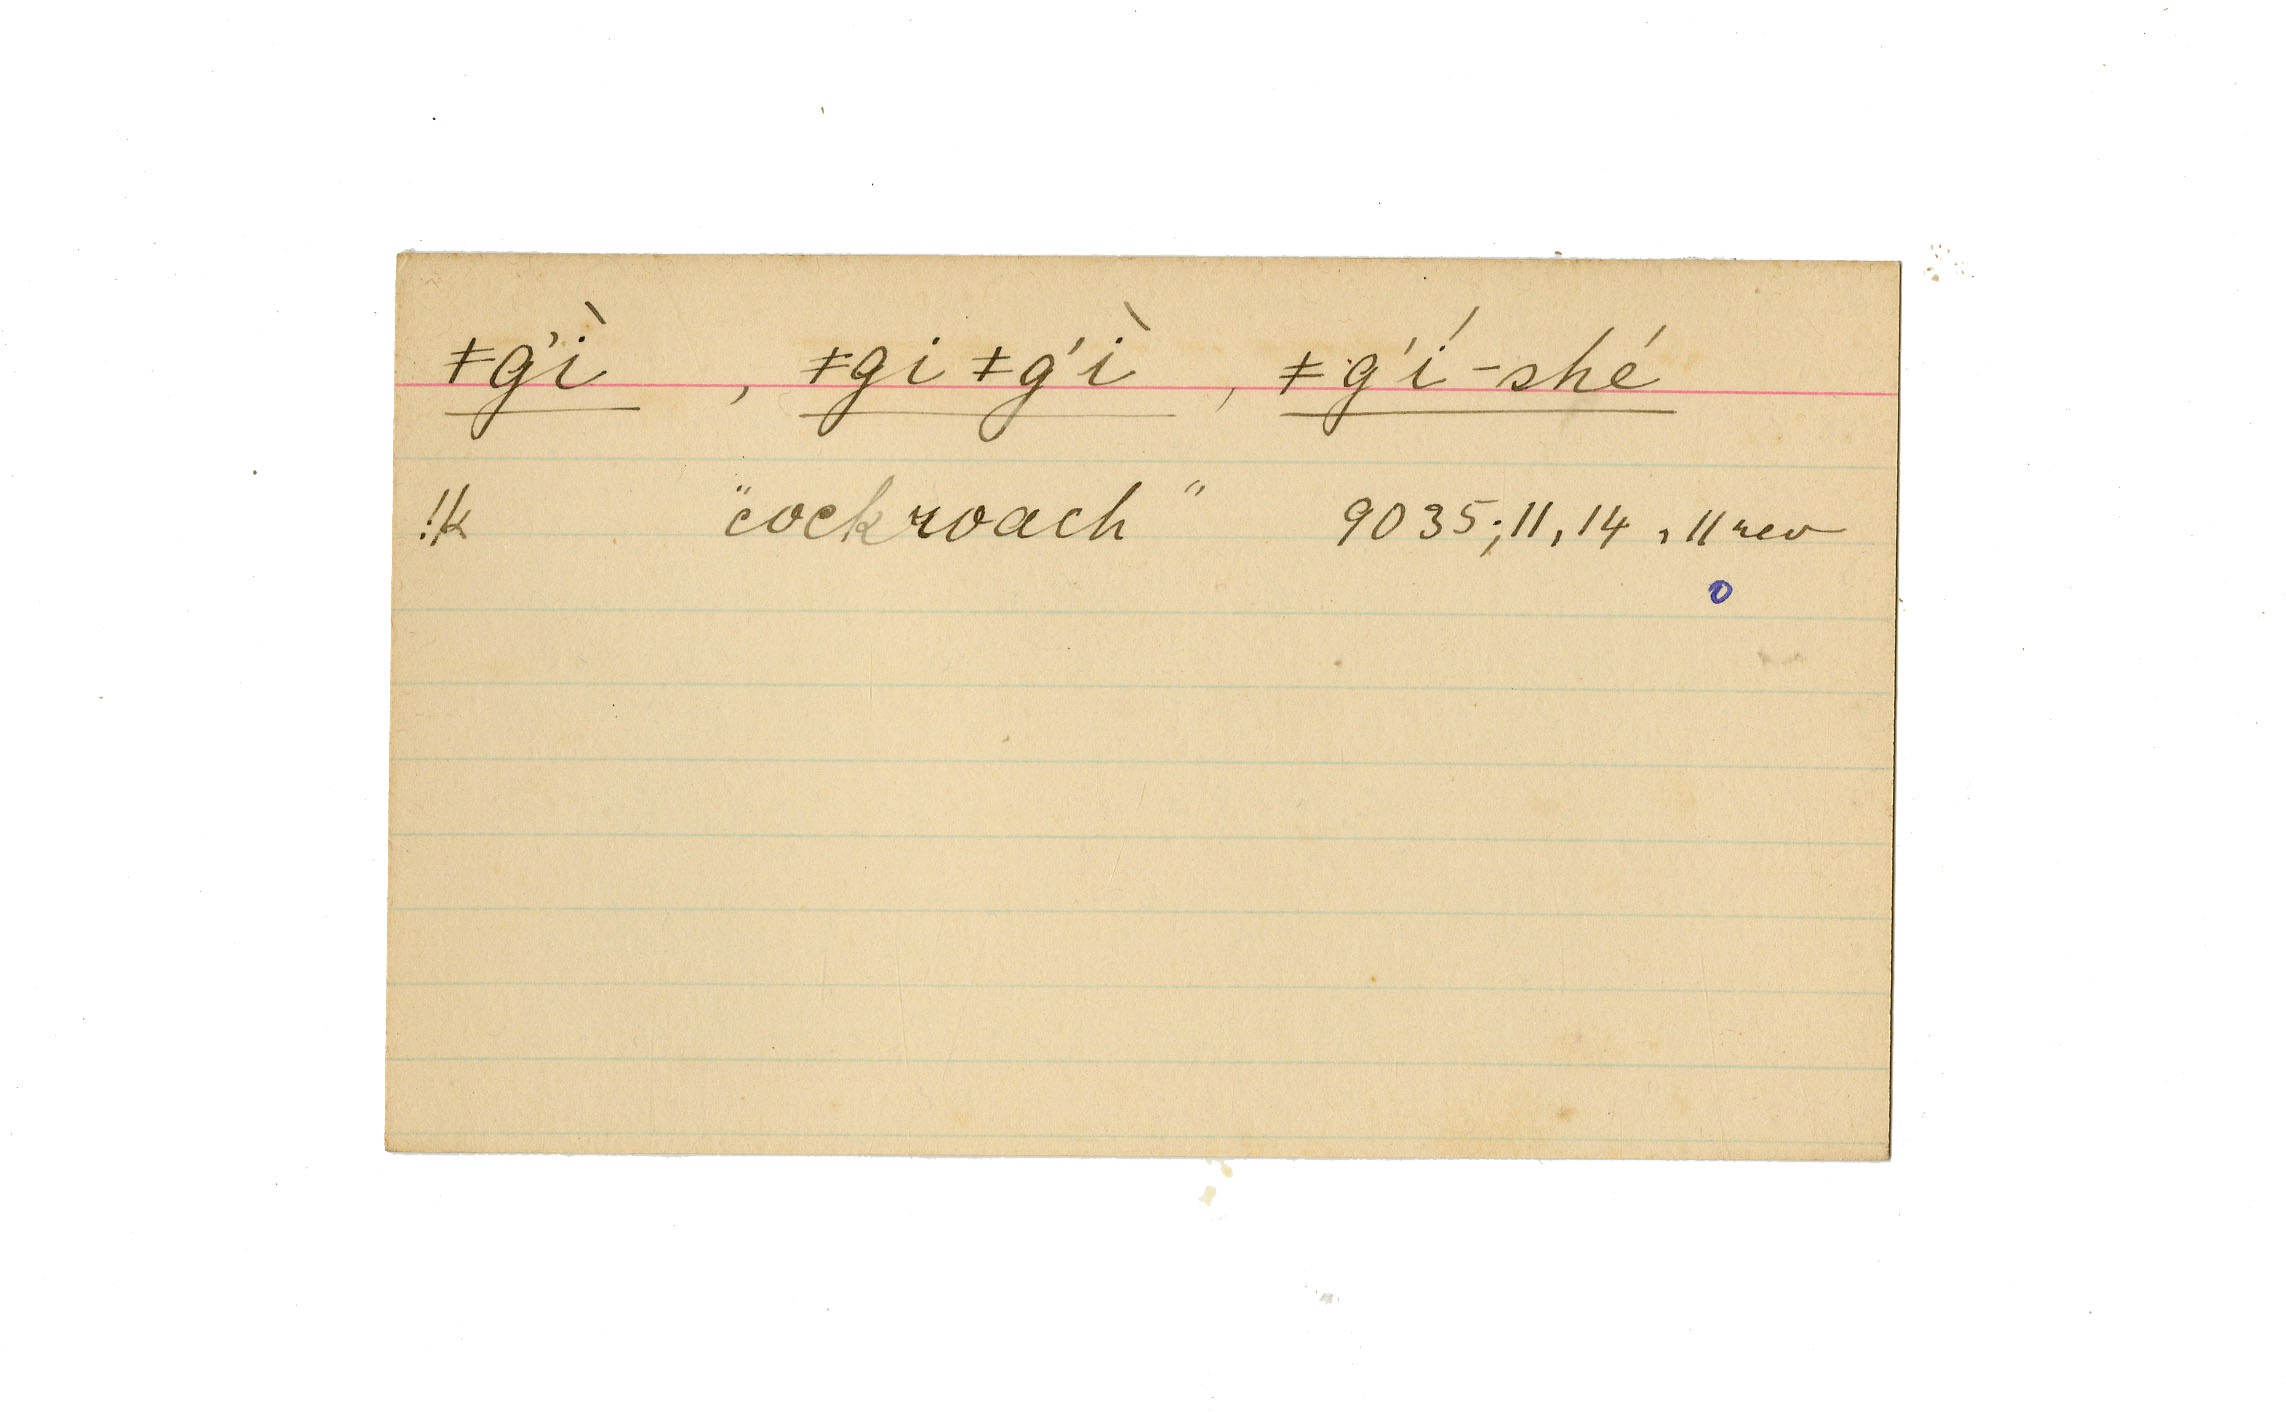 ǂg'ì , ǂgi ǂg'ì , ǂg'í-shé
!k "cockroach" 9035; 11, 14, 11 rev
o